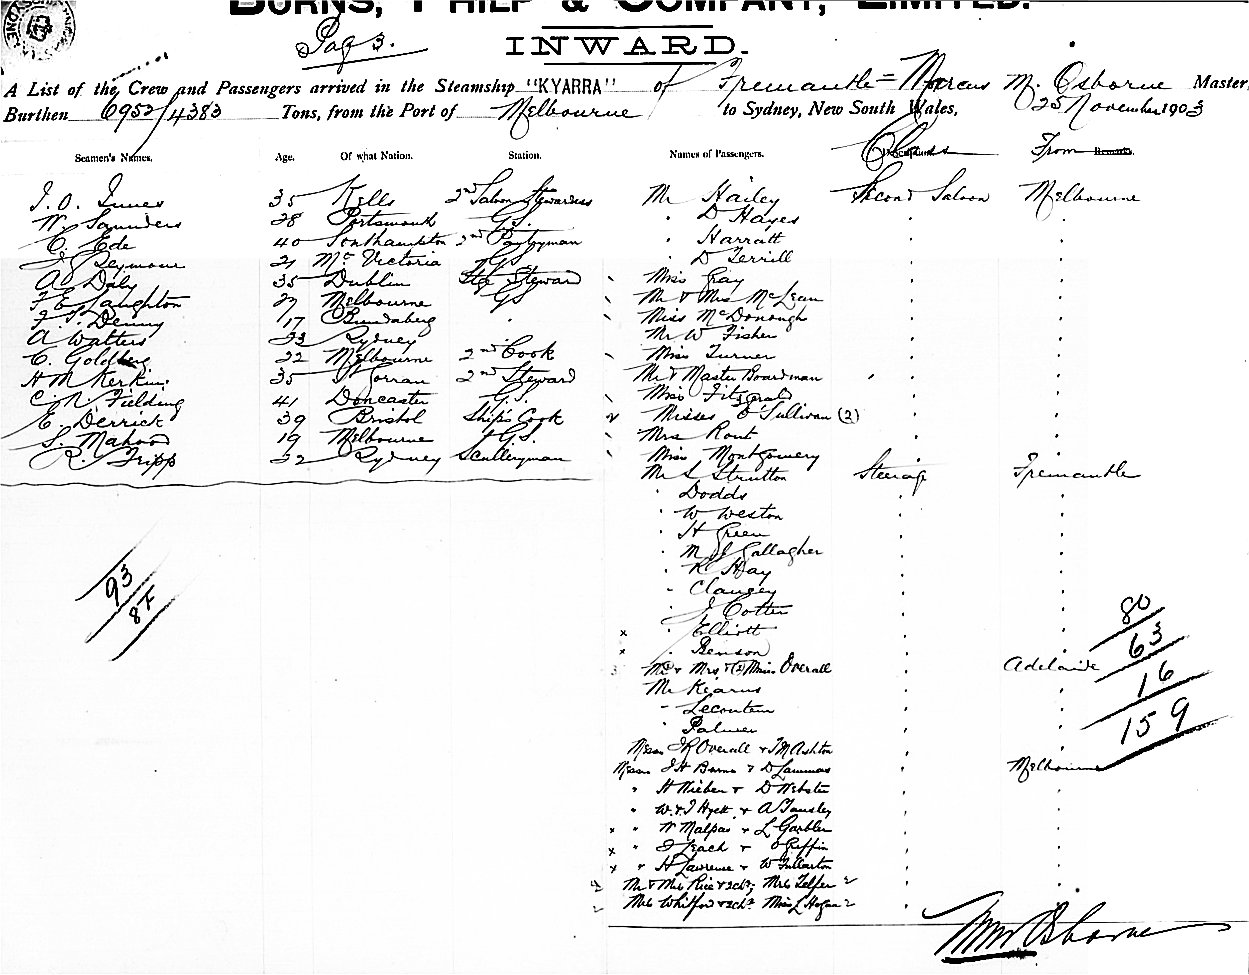 BURNS, PHILP & COMPANY, LIMITED.
Pag 3.
INWARD.
A List of the Crew and Passengers arrived in the Steamship "KYARRA" of Fremantle = Marcus M. Osborne Master,
Burthen 6953/4383 Tons, from the Port of Melbourne to Sydney, New South Wales, 25 November 1903
Seamen's Names. Age. Of what Nation. Station. Names of Passengers. Class From Remarks.
J. O. Innes 35 Kells 2nd Saloon Stewardess Mr Hailey Second Saloon Melbourne
W. Saunders 28 Portsmouth G.S. " D Hayes
C. Ede 40 Southampton 2nd Pantryman " Harratt
J Seymour 21 Mc Victoria GS " D Terrill
A Daly 35 Dublin Stge Steward Miss Gray
F E Laughton 27 Melbourne GS Mr & Mrs McLean
F. J. Denny 17 Bundaberg " Miss McDonough
A Watters 23 Sydney Mr W Fisher
C. Goldberg 22 Melbourne 2nd Cook Miss Turner
H M Kerkin 35 St Gorran 2nd Steward Mr & Master Boardman
C. N Fielding 41 Doncaster G.S. Miss Fitzgerald
E Derrick 39 Bristol Ship's Cook Misses O'Sullivan (2)
S. Mahood 19 Melbourne G.S. Mrs Rout
R. Tripp 22 Sydney Scullyman Miss Montgomery
Mr S Strutton Steerage Fremantle
" Dodds
" W Weston
" H Green
" M J Gallagher
" R Hay
" Clancey
" J Cotter
x " Elliott
x " Benson
Mr & Mrs & (2) Miss Overall Adelaide
Mr Kearns
" Lecontem
" Palmer
Messrs J R Overall & J M Ashton
Messrs J H Burns & D Lammas Melbourne
" H Nieber & D Webster
" W & J Hyett & A Tansley
x " W Malpas & L Garbler
x " J Leach & O Griffin
x " H Lawrence & W Fullarton
Mr & Mrs Rice & 2 chn, Mrs Telfer
Mrs Whitford & 2 chn Miss L Hogan
93
87
80
63
16
159
Mm Osborne